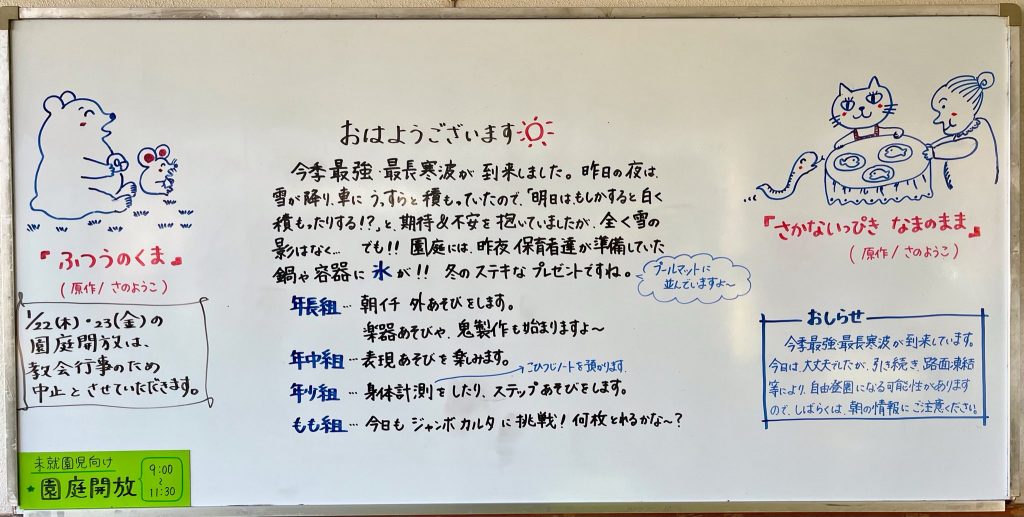 おはようございます
今季最強・最長寒波が到来しました。昨日の夜は、
雪が降り、車にうっすらと積もっていたので、「明日は、もしかすると白く
積もったりする!?」と、期待&不安を抱いていましたが、全く雪の
影はなく… でも!! 園庭には、昨夜保育者達が準備していた
鍋や容器に氷が!! 冬のステキなプレゼントですね。
プールマットに
並んでいますよ〜
年長組…朝イチ外あそびをします。
楽器あそびや、鬼製作も始まりますよ〜
年中組…表現あそびを楽しみます。
こひつじノートを預かります。
年少組…身体計測をしたり、ステップあそびをします。
もも組…今日もジャンボカルタに挑戦!何枚とれるかな〜?
『ふつうのくま』
(原作/さのようこ)
1/22(木)・23(金)の
園庭開放は、
教会行事のため
中止とさせていただきます。
未就園児向け
園庭開放
9:00
〜
11:30
『さかないっぴき なまのまま』
(原作/さのようこ)
おしらせ
今季最強・最長寒波が到来しています。
今日は、大丈夫でしたが、引き続き、路面凍結
等により、自由登園になる可能性があります
ので、しばらくは、朝の情報にご注意ください。